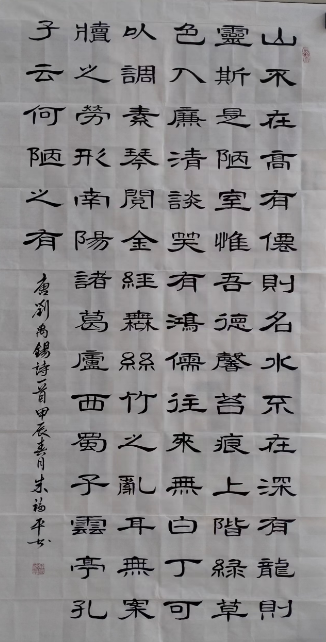 山不在高有僊則名水不在深有龍則
靈斯是陋室惟吾德馨苔痕上階綠草
色入廉清談笑有鴻儒往來無白丁可
以調素琴閱金経無絲竹之亂耳無案
牘之勞形南陽諸葛廬西蜀子雲亭孔
子云何陋之有
唐劉禹錫詩一首甲辰春月朱福平书